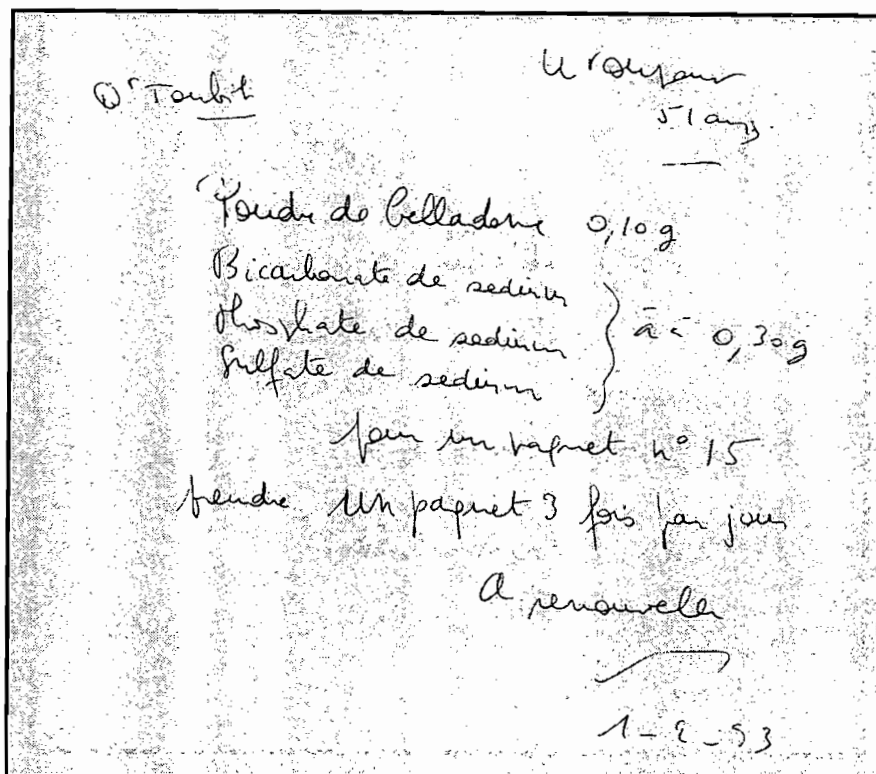 Dr Toubib
Mr Dupont
51 ans
Poudre de belladone 0,10 g
Bicarbonate de sodium
Phosphate de sodium } ãã 0,30 g
Sulfate de sodium
pour un paquet n° 15
prendre un paquet 3 fois par jour
A renouveler